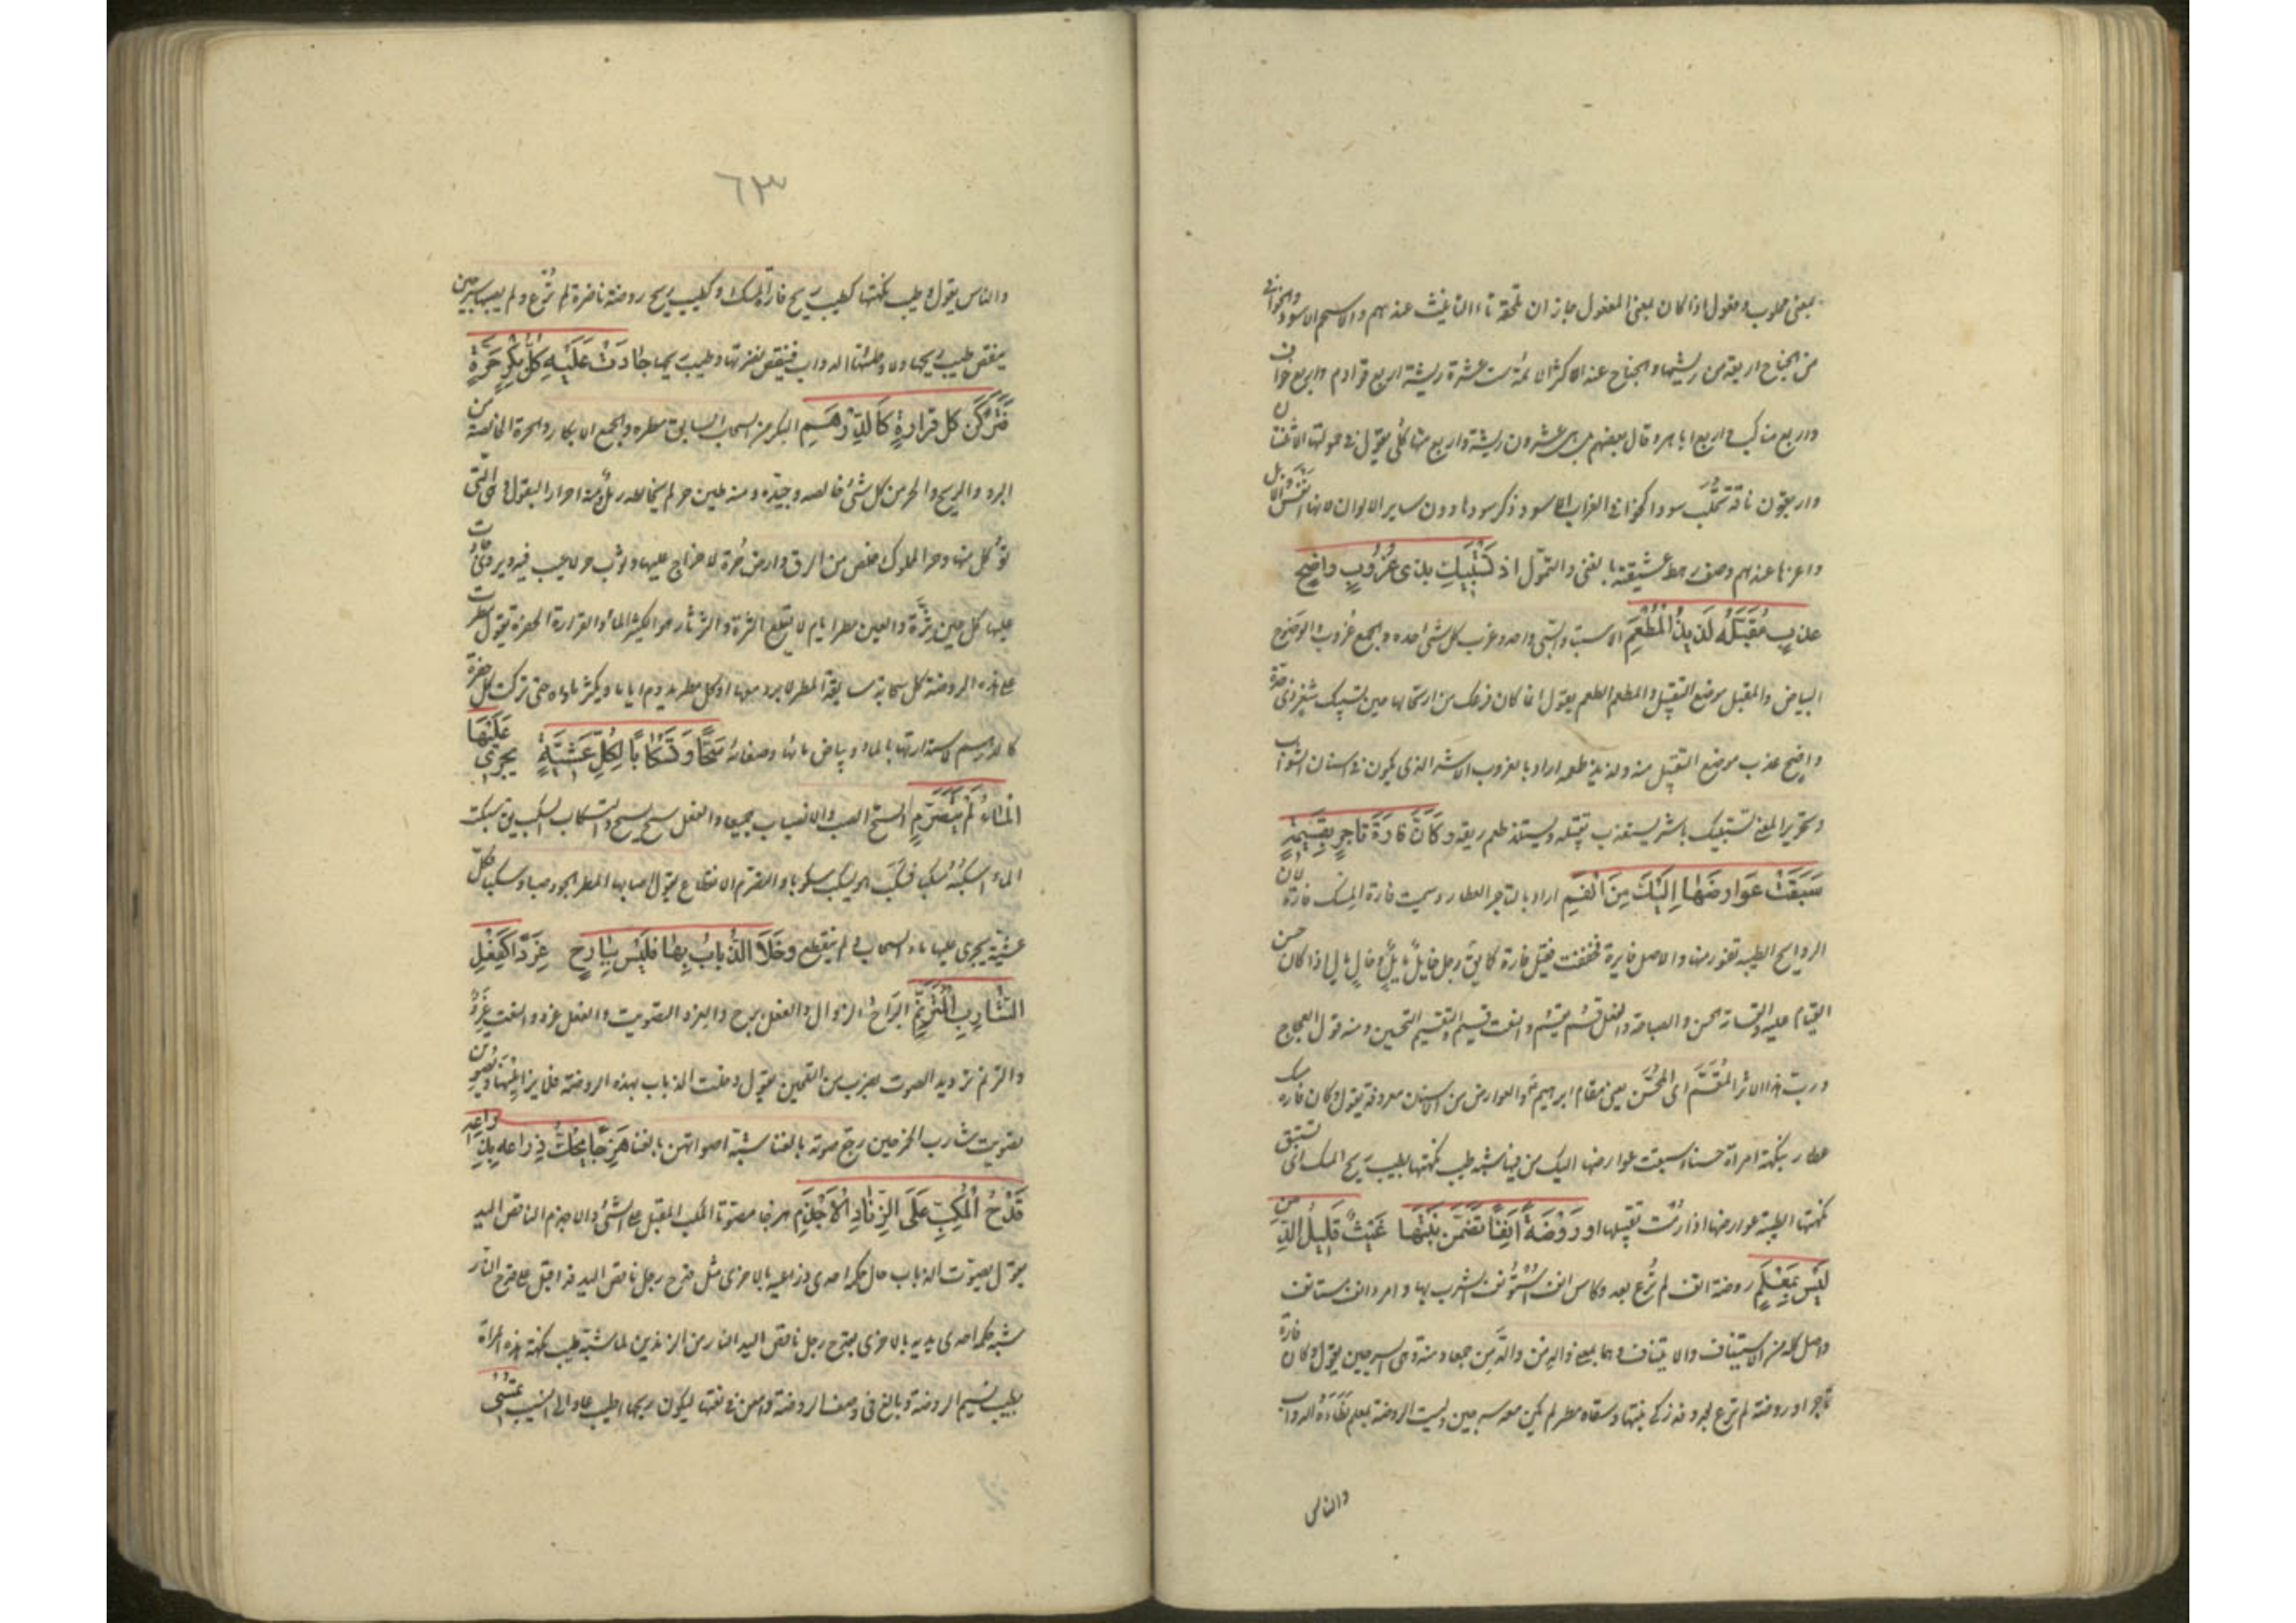 بمعنى محلوب وفعول اذا كان بمعنى المفعول جاز ان تلحقه تاء التانيث عندهم والاسحم الاسود والخوافي
من الجناح اربعة من ريشها والجناح عند اكثر الائمة ست عشرة ريشة اربع قوادم واربع خواف
واربع مناكب واربع اباهر وقال بعضهم بل هي عشرون ريشة واربع منها كلى يقول في حمولتها اثنتان
واربعون ناقة تحلب سودا كخوافي الغراب الاسود ذكر سودها دون ساير الالوان لانها انفس الابل
واعزها عندهم وصف رهط عشيقته بالغنى والتمول اذ تَسْتَبِيكَ بذى غُرُوبٍ واضِحٍ
عذبٍ مُقَبَّلُهُ لَذِيذُ الْمَطْعَمِ الاستباء والسبي واحد وغرب كل شئ حده والجمع غروب والوضوح
البياض والمقبل موضع التقبيل والمطعم الطعم يقول انما كان فزعك من ارتحالها حين تستبيك بثغر ذى حدة
واضح عذب موضع التقبيل منه ولذيذ طعمه اراد بالغروب الاشر الذى يكون في اسنان الشواب
وتحرير المعنى تستبيك باشر يستعذب تقبيله ويستلذ طعم ريقه وَكَأَنَّ فَارَةَ تاجِرٍ بِقَسِيمَةٍ
سَبَقَتْ عَوَارِضَهَا اِلَيْكَ مِنَ الْفَمِ اراد بالتاجر العطار وسميت فارة المسك فارة لان
الروايح الطيبة تفور منها والاصل فايرة فخففت فقيل فارة كما يق رجل خايل وخال اذا كان حسن
القيام عليه والقسامة الحسن والصباحة والفعل قسم يقسم والنعت قسيم والتقسيم التحسين ومنه قول العجاج
ورب هذا الاثر المُقَسَّم اى المُحَسَّن يعنى مقام ابرهيم ع والعوارض من الاسنان معروفة يقول وكان فارة مسك
عطار بنكهة امراة حسناء سبقت عوارضها اليك من فيها شبه طيب نكهتها بطيب ريح المسك اى تسبق
نكهتها الطيبة عوارضها اذا رمت تقبيلها او رَوْضَةً اُنُفًا تَضَمَّنَ نَبْتَهَا غَيْثٌ قَلِيلُ الدِّمْنِ
لَيْسَ بِمَعْلَمِ روضة انف لم تُرع بعد وكاس انف استؤنف الشرب بها وامر انف مستانف
واصل كله من الاستيناف والايتناف وهما بمعنى والدمن والدِّمَن جمعا دمنة وهى السرجين يقول وكان فارة
تاجر او روضة لم ترع بعد وقد زكى نبتها وسقاه مطر لم يكن معه سرجين وليست الروضة بمعلم تطاءه الدواب
والناس
٦٣
والناس يقول طيب نكهتها كطيب ريح فارة المسك وكطيب ريح روضة ناضرة لم تُرع ولم يصبها سرجين
ينقص طيب ريحها ولا وطئتها الدواب فينقص نضرتها وطيب ريحها جَادَتْ عَلَيْهِ كُلُّ بِكْرٍ حُرَّةٍ
فَتَرَكْنَ كل قرارةٍ كَالدِّرْهَمِ البكر من السحاب السابق مطره والجمع الابكار والحرة الخالصة من
البرد والريح والحر من كل شئ خالصه وجيده ومنه طين حر لم يخالطه رمل ومنه احرار البقول وهى التى
تؤكل منها وحر المملوك خلص من الرق وارض حُرة لا خراج عليها وثوب حر لا عيب فيه ويروى جادت
عليها كل عين ثَرَّة والعين مطر ايام لا يقلع والثرة والثرثار هو الكثير الماء والقرارة الحفرة يقول مطرت
على هذه الروضة كل سحابة سابقة المطر لا برد معها او كل مطر يدوم اياما ويكثر ماؤه حتى تركت كل حفرة
كالدرهم لاستدارتها بالماء وبياض مائها وصفائه سَحًّا وَتَسْكَابًا لِكُلِّ عَشِيَّةٍ يَجْرِى عَلَيْهَا
الْمَاءُ لَمْ يَتَصَرَّمِ السح الصب والانصباب جميعا والفعل سح يسح والتسكاب السكب يق سكبت
الماء اسكبه سكبا فسكب هو يسكب سكوبا والتصرم الانقطاع يقول اصابها المطر الجود صبا وسكبا كل
عشية يجرى عليها ماء السحاب لم ينقطع وخَلَا الذُّبابُ بِها فَلَيْسَ بِبَارِحٍ غَرِدًا كَفِعْلِ
الشَّارِبِ الْمُتَرَنِّمِ البَرَاح الزوال والفعل برح والغرد التصويت والفعل غرد والنعت غَرِدٌ
والترنم ترديد الصوت بضرب من التلحين يقول وخلت الذباب بهذه الروضة فلا يزايلنها ويصوتن
تصويت شارب الخمر حين رجع صوته بالغنا شبه اصواتهن بالغنا هَزِجًا يَحُكُّ ذِرَاعَهُ بِذِرَاعِهِ
قَدْحَ الْمُكِبِّ عَلَى الزِّنَادِ الْاَجْذَمِ هزجا مصوتا المكب المقبل على الشئ والاجذم الناقص اليد
يقول يصوت الذباب حال حكه احدى ذراعيه بالاخرى مثل قدح رجل ناقص اليد قد اقبل على قدح النار
شبه حكه احدى يديه بالاخرى بقدح رجل ناقص اليد النار من الزندين لما شبه طيب نكهة هذه المراة
بطيب نسيم الروضة وبالغ في وصف الروضة وامعن في نعتها ليكون ريحها اطيب عاد الى النسيب تُمْسِى